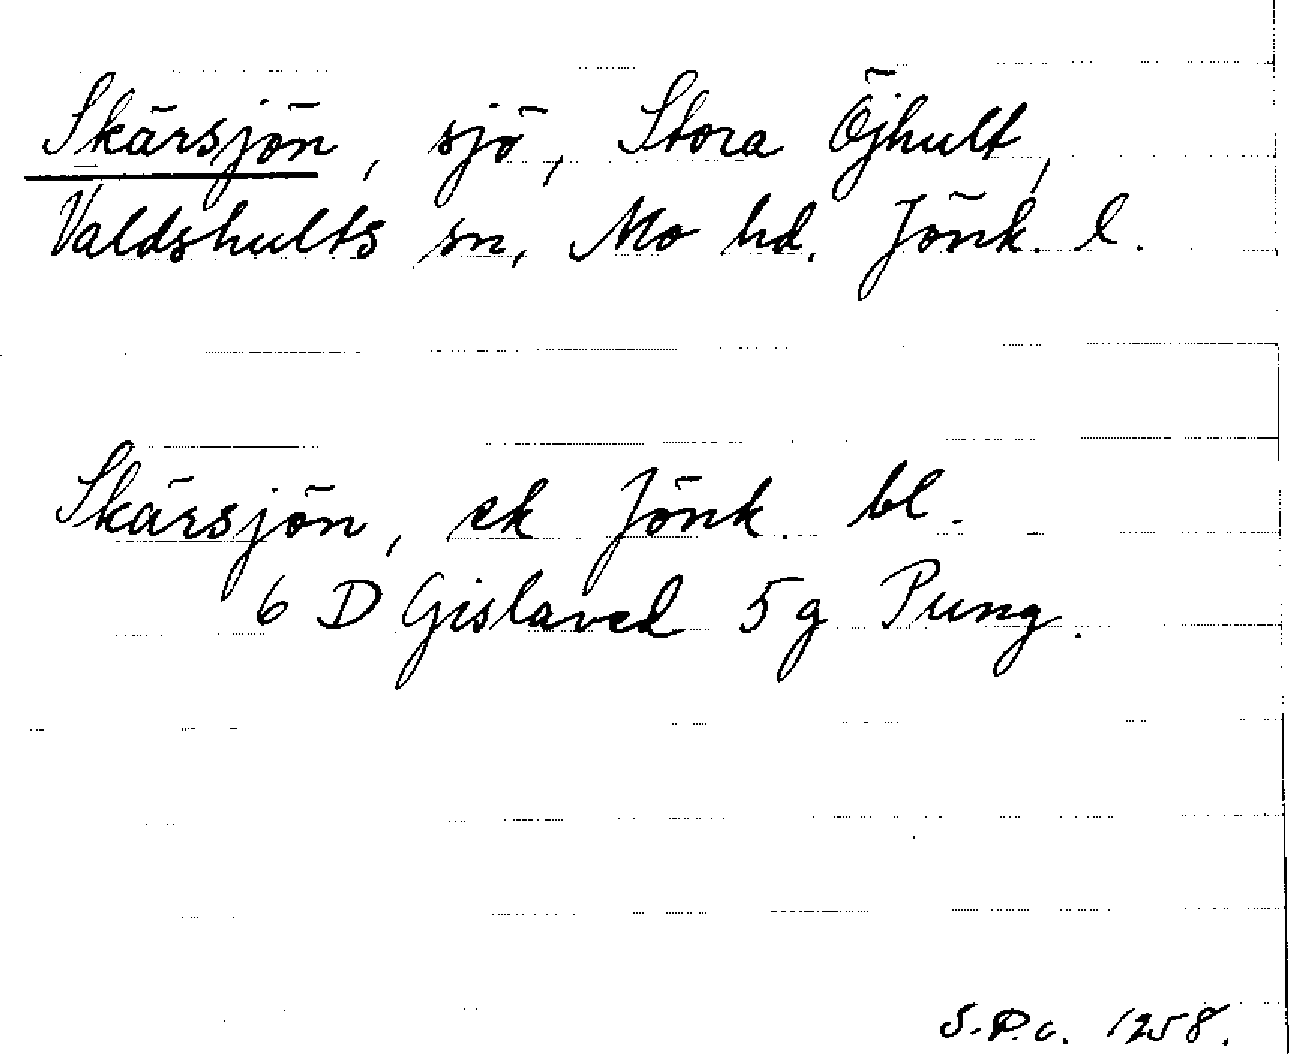 Skärsjön, sjö, Stora Öjhult,
Valdshults sn, Mo hd. Jönk. l.
Skärsjön, ek Jönk. bl.
6 D Gislaved 5 g Pung.
S.P.c. 1258.